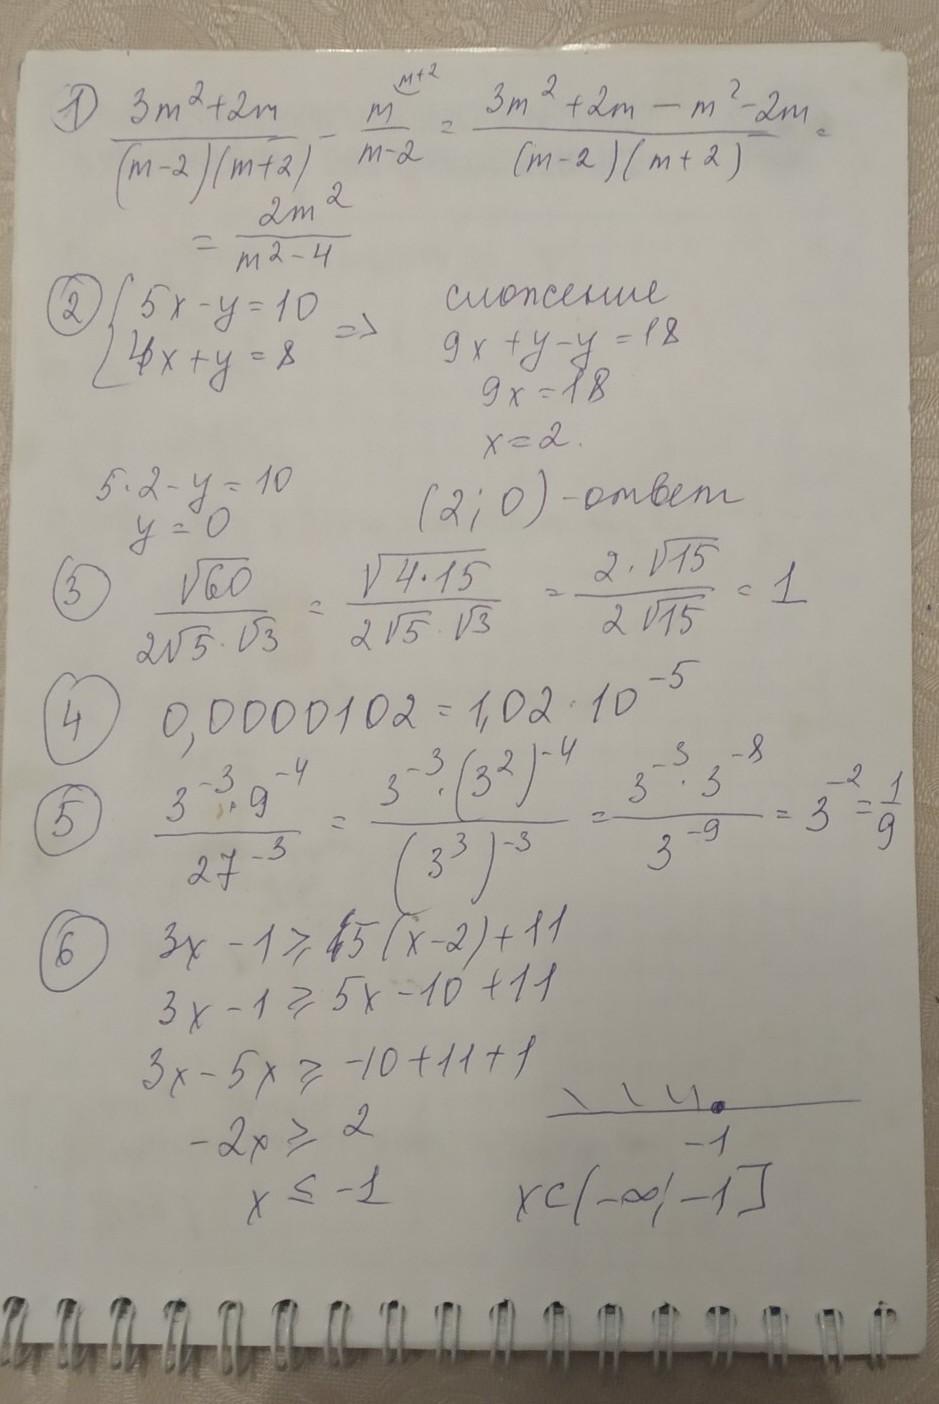 1) (3m²+2m)/((m-2)(m+2)) - m^(m+2)/(m-2) = (3m²+2m-m²-2m)/((m-2)(m+2)) =
= 2m²/(m²-4)
2) { 5x-y=10 => сложение
4x+y=8 9x+y-y=18
9x=18
x=2.
5·2-y=10
y=0 (2;0)-ответ
3) √60/(2√5·√3) = √(4·15)/(2√5·√3) = 2·√15/(2√15) = 1
4) 0,0000102=1,02·10⁻⁵
5) (3⁻³·9⁻⁴)/27⁻³ = (3⁻³·(3²)⁻⁴)/(3³)⁻³ = (3⁻³·3⁻⁸)/3⁻⁹ = 3⁻² = 1/9
6) 3x-1≥5(x-2)+11
3x-1≥5x-10+11
3x-5x≥-10+11+1
-2x≥2
-1
x≤-1
x∈(-∞;-1]